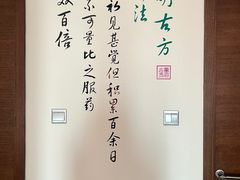 明古方
法
初见甚觉但积累百余日
不可量比之服药
效百倍